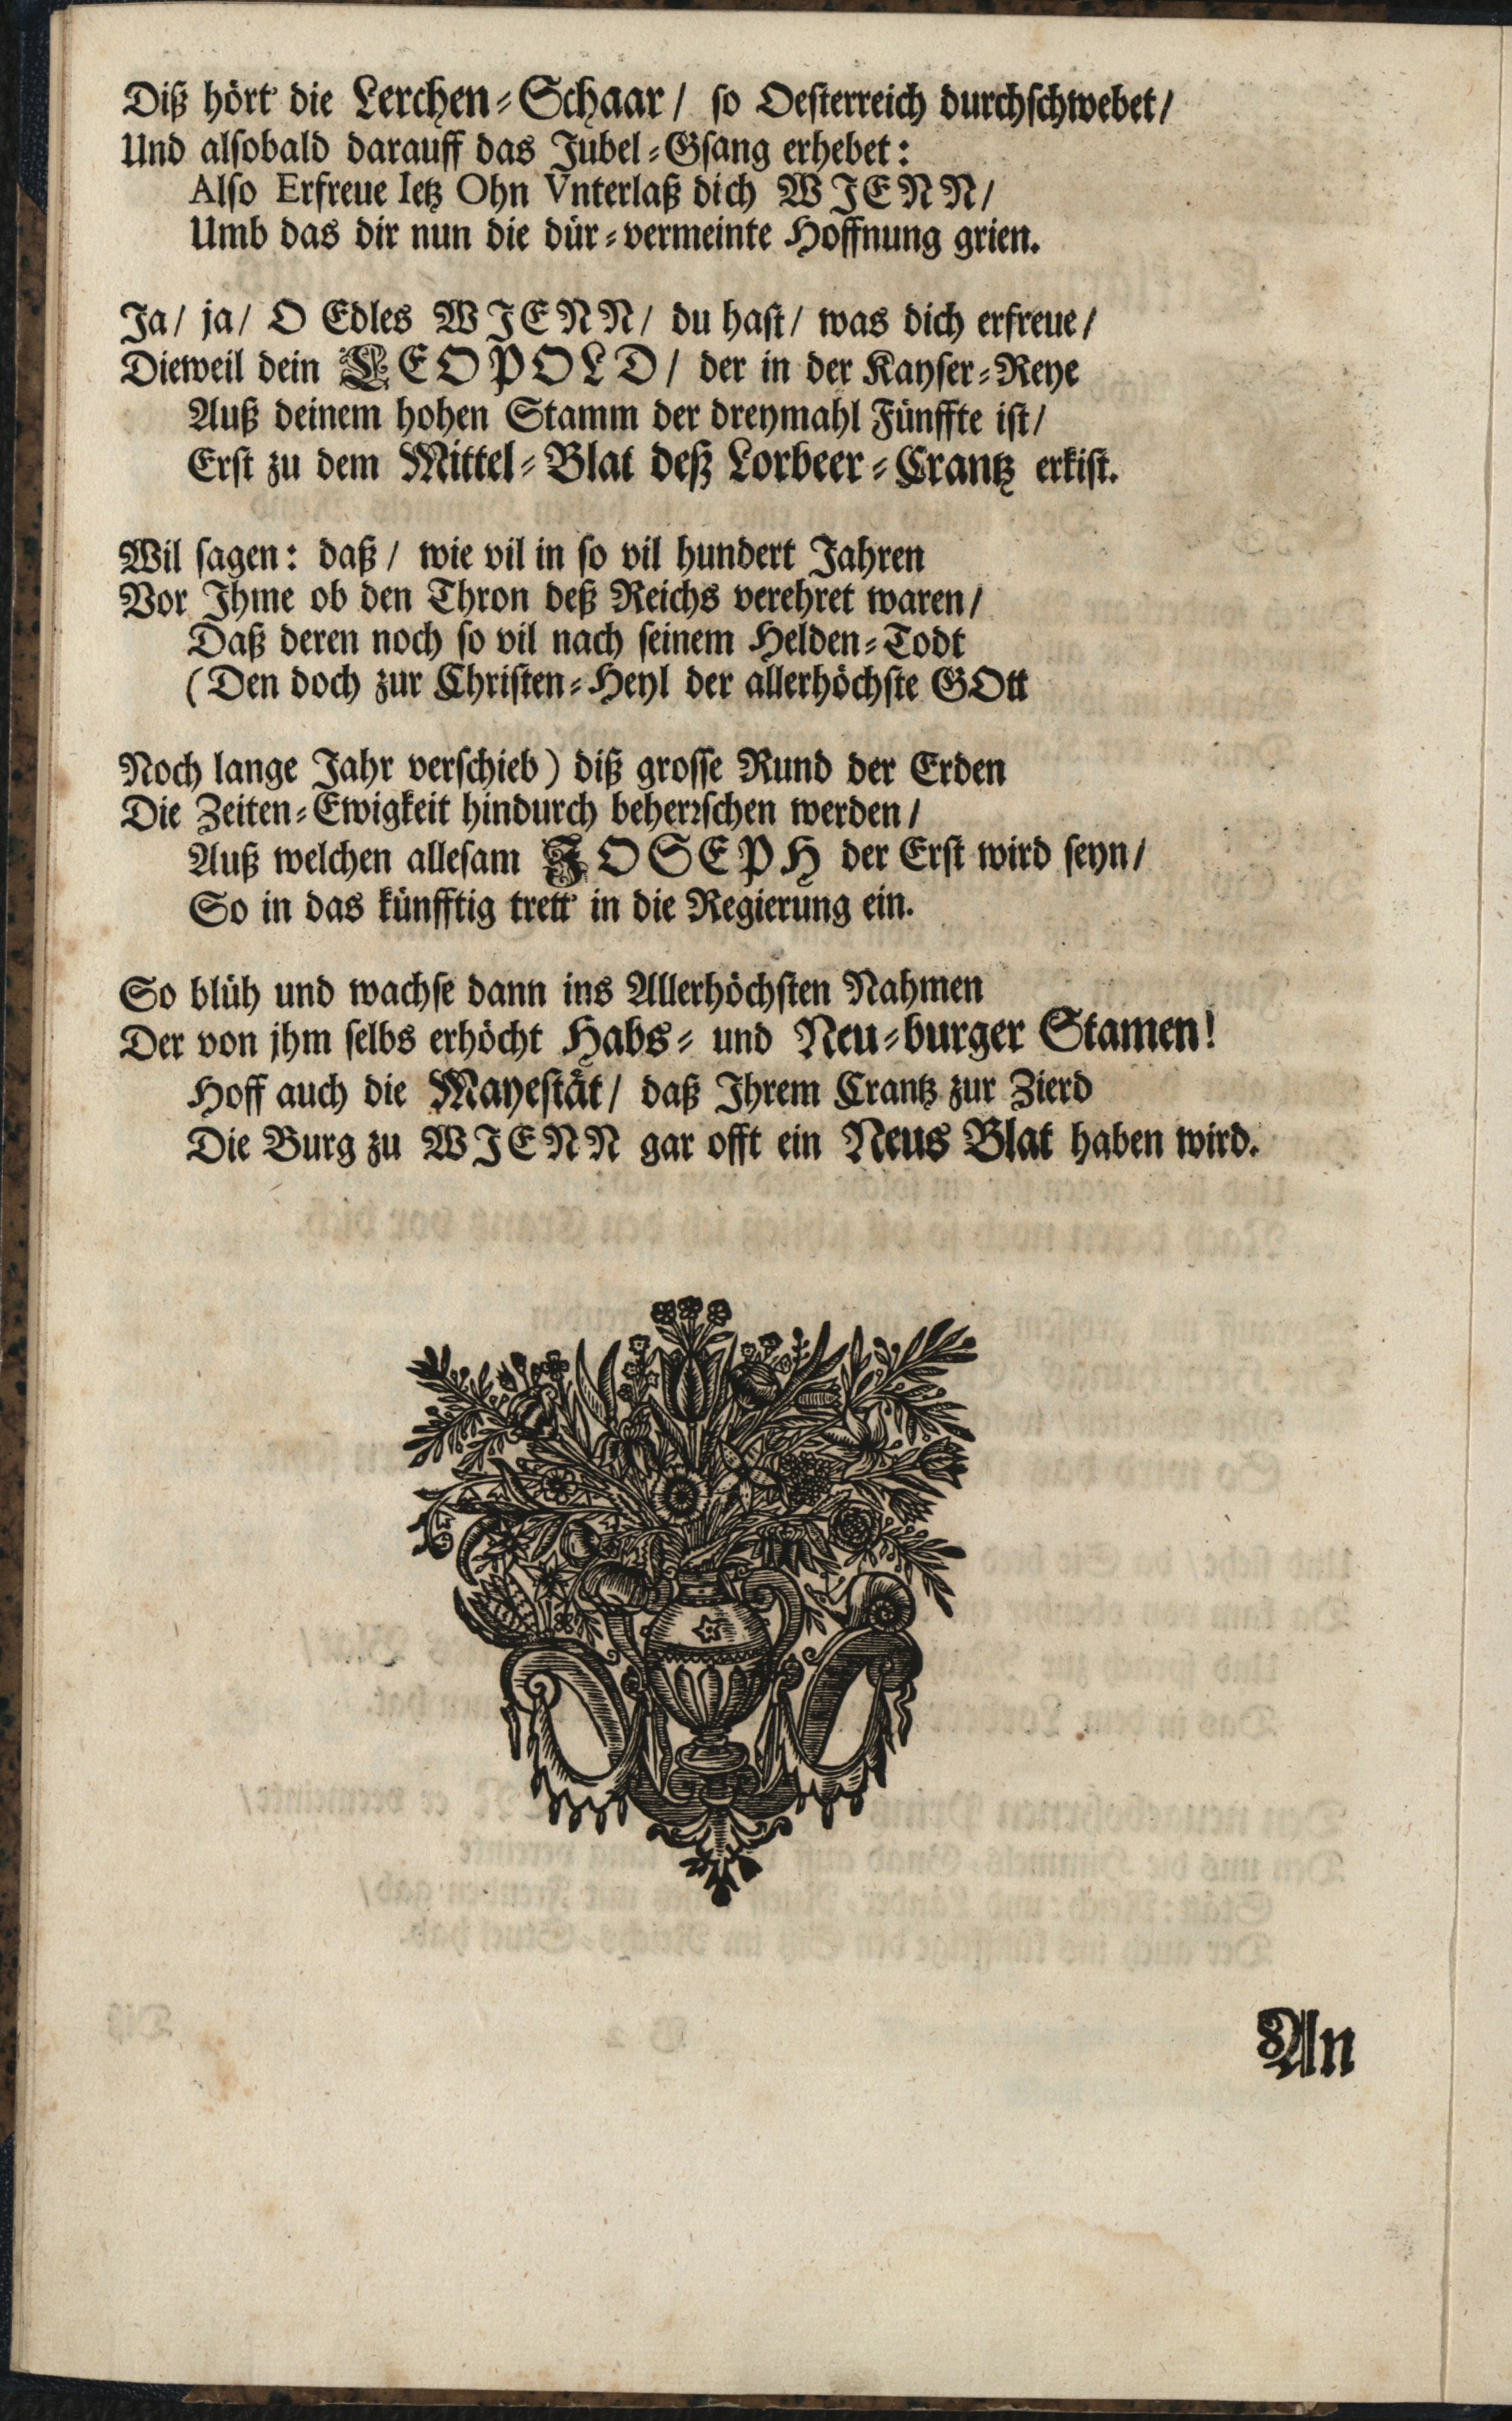 Diß hört die Lerchen-Schaar / so Oesterreich durchschwebet /
Und alsobald darauff das Jubel-Gsang erhebet :
Also Erfreue Ietz Ohn Vnterlaß dich WIENN /
Umb das dir nun die dür-vermeinte Hoffnung grien.
Ja / ja / O Edles WIENN / du hast / was dich erfreue /
Dieweil dein LEOPOLD / der in der Kayser-Reye
Auß deinem hohen Stamm der dreymahl Fünffte ist /
Erst zu dem Mittel-Blat deß Lorbeer-Crantz erkist.
Wil sagen : daß / wie vil in so vil hundert Jahren
Vor Jhme ob den Thron deß Reichs verehret waren /
Daß deren noch so vil nach seinem Helden-Todt
(Den doch zur Christen-Heyl der allerhöchste GOtt
Noch lange Jahr verschieb) diß grosse Rund der Erden
Die Zeiten-Ewigkeit hindurch beherrschen werden /
Auß welchen allesam JOSEPH der Erst wird seyn /
So in das künfftig trett in die Regierung ein.
So blüh und wachse dann ins Allerhöchsten Nahmen
Der von jhm selbs erhöcht Habs- und Neu-burger Stamen!
Hoff auch die Mayestät / daß Ihrem Crantz zur Zierd
Die Burg zu WIENN gar offt ein Neus Blat haben wird.
An